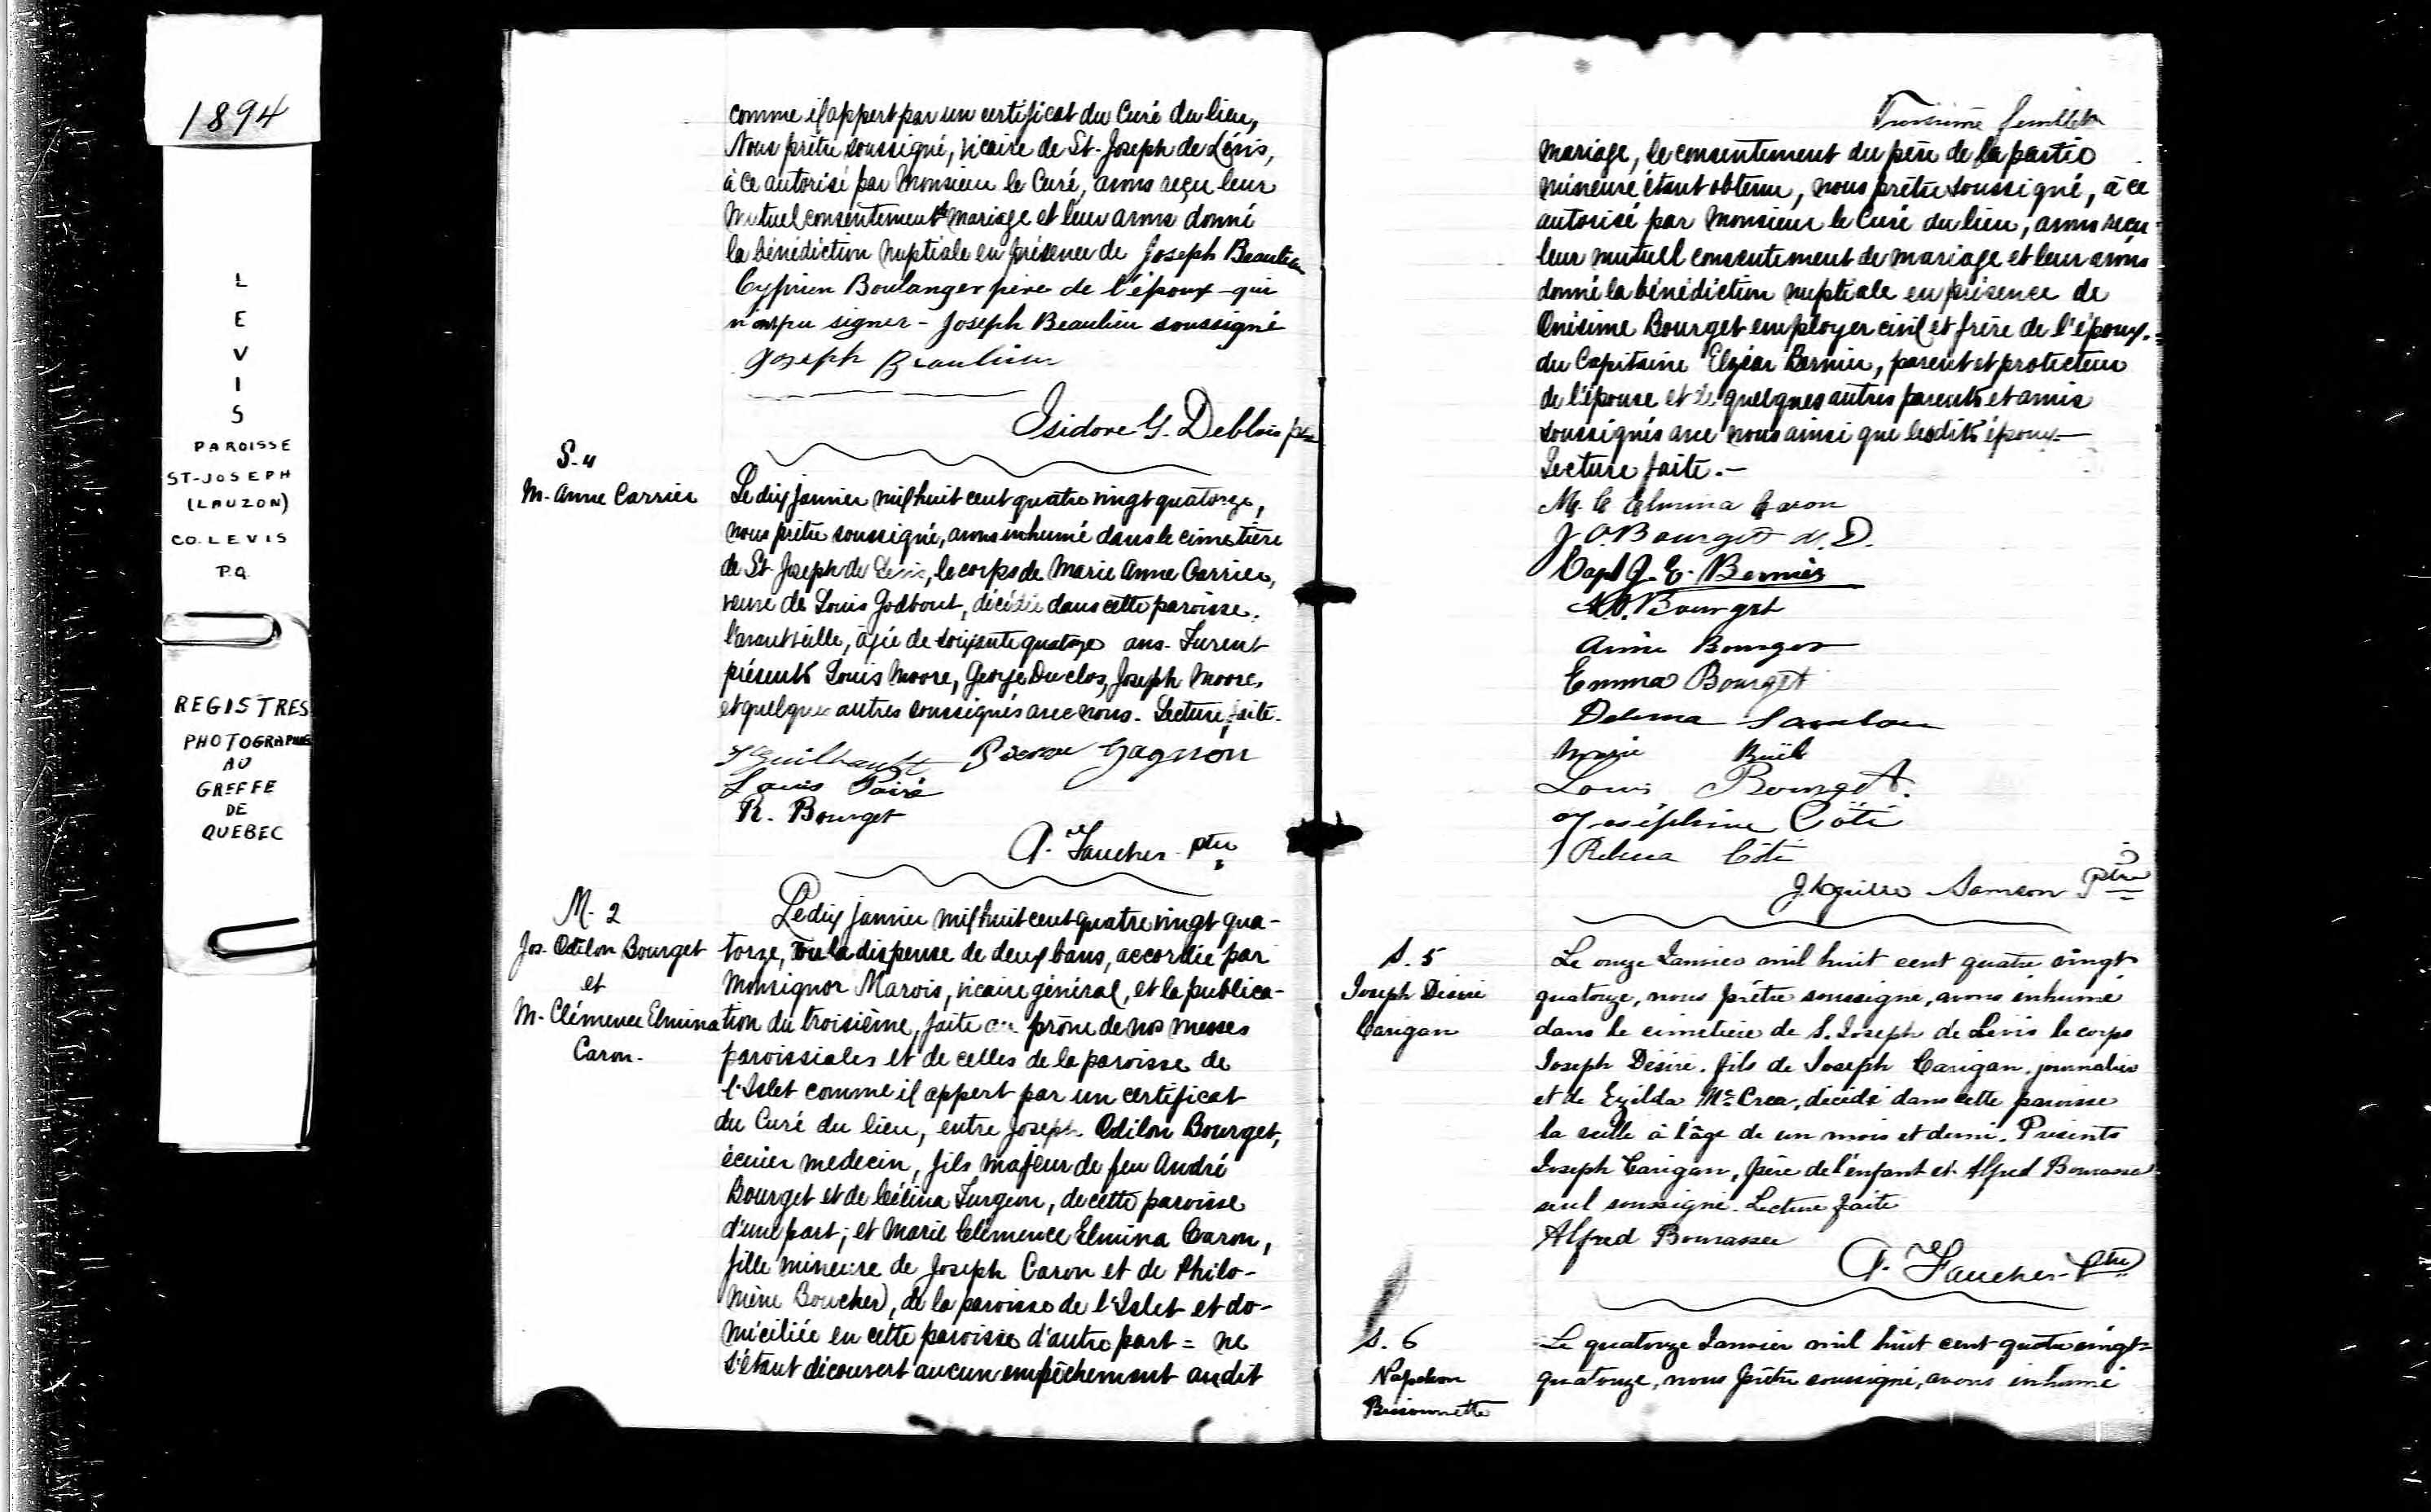 1894
L
E
V
I
S
PAROISSE
ST-JOSEPH
(LAUZON)
CO. LEVIS
P.Q.
REGISTRES
PHOTOGRAPHIÉS
AU
GREFFE
DE
QUEBEC
comme il appert par un certificat du Curé du lieu,
Nous prêtre soussigné, vicaire de St-Joseph de Lévis,
à ce autorisé par Monsieur le Curé, avons reçu leur
Mutuel consentement de mariage et leur avons donné
la bénédiction nuptiale en présence de Joseph Beaulieu
Cyprien Boulanger père de l'époux qui
n'ont pu signer - Joseph Beaulieu soussigné
Joseph Beaulieu
Isidore G. Deblois ptre
S. 4
M. Anne Carrier
Le dix janvier mil huit cent quatre vingt quatorze,
nous prêtre soussigné, avons inhumé dans le cimetière
de St-Joseph de Lévis, le corps de Marie Anne Carrier,
veuve de Louis Godbout, décédée dans cette paroisse,
l'avant veille, âgée de soixante quatorze ans. Furent
présents Louis Moore, George Duclos, Joseph Moore,
et quelques autres soussignés avec nous. Lecture faite.
Guilbault Pierre Gagnon
Louis Paré
R. Bourget
A. Faucher ptre
M. 2
Jos. Odilon Bourget
et
M. Clémence Elmina
Caron.
Le dix janvier mil huit cent quatre vingt qua-
torze, vu la dispense de deux bans, accordée par
Monsignor Marois, vicaire général, et la publica-
tion du troisième, faite au prône de nos messes
paroissiales et de celles de la paroisse de
l'Islet comme il appert par un certificat
du Curé du lieu, entre Joseph Odilon Bourget,
écuier medecin, fils majeur de feu André
Bourget et de Célina Turgeon, de cette paroisse
d'une part; et Marie Clémence Elmina Caron,
fille mineure de Joseph Caron et de Philo-
mène Boucher, de la paroisse de l'Islet et do-
miciliée en cette paroisse d'autre part = ne
s'étant découvert aucun empêchement audit
Troisième feuillet
mariage, le consentement du père de la partie
mineure étant obtenu, nous prêtre soussigné, à ce
autorisé par Monsieur le Curé du lieu, avons reçu
leur mutuel consentement de mariage et leur avons
donné la bénédiction nuptiale en présence de
Onésime Bourget employer civil et frère de l'époux.
du Capitaine Elzéar Bernier, parent et protecteur
de l'épouse et de quelques autres parents et amis
soussignés avec nous ainsi que lesdits époux
Lecture faite.-
M. C. Elmina Caron
J. O. Bourget M.D.
Capt J. E. Bernier
Bourget
Annie Bourget
Emma Bourget
Delima
Marie
Louis Bourget.
Joséphine Côté
Rebecca Côté
Samson Ptre
S. 5
Joseph Désiré
Carigan
Le onze Janvier mil huit cent quatre vingt
quatorze, nous prêtre soussigné, avons inhumé
dans le cimetière de S. Joseph de Levis le corps
Joseph Désiré, fils de Joseph Carigan, journalier
et de Ezilda Mc Crea, décédé dans cette paroisse
la veille à l'âge de un mois et demi. Présents
Joseph Carigan, père de l'enfant et Alfred Bourassa
seul soussigné. Lecture faite
Alfred Bourassa
A. Faucher Ptre
S. 6
Napoléon
Bissonnette
Le quatorze Janvier mil huit cent quatre vingt-
quatorze, nous prêtre soussigné, avons inhumé